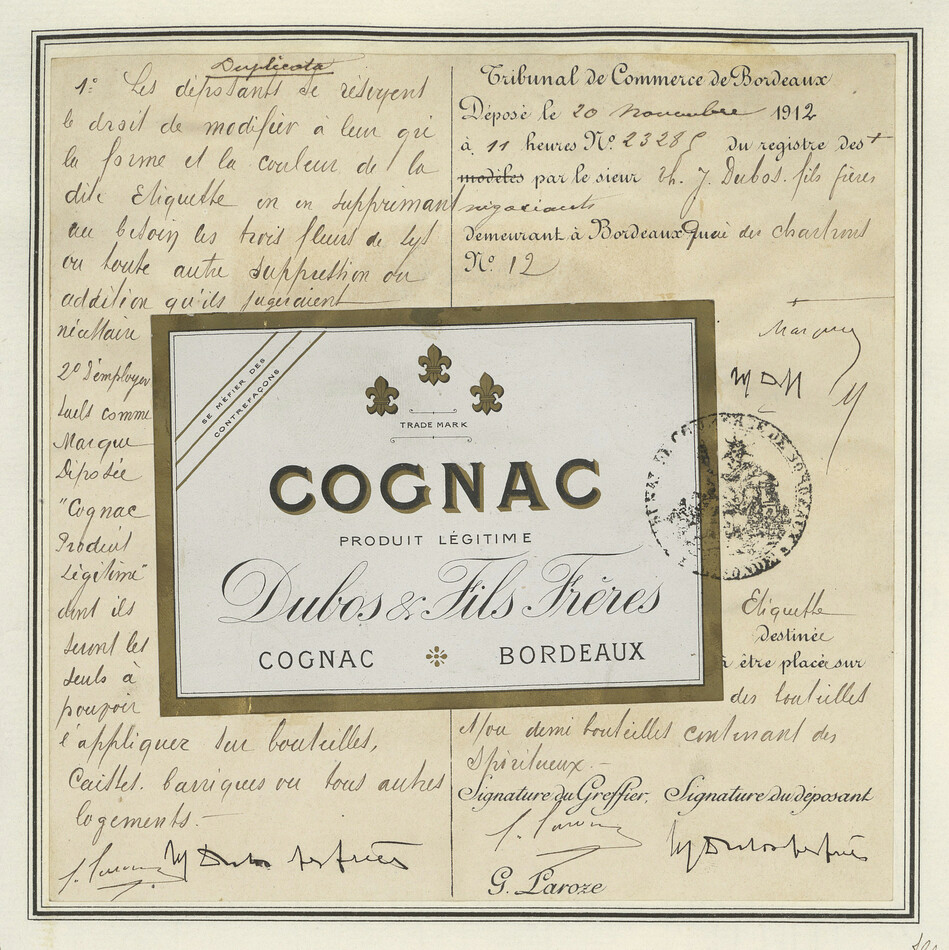 Duplicata
1º Les déposants se réservent
le droit de modifier à leur gré
la forme et la couleur de la
dite Etiquette en en supprimant
au besoin les trois fleurs de Lys
ou toute autre suppression ou
addition qu'ils jugeraient
nécessaire
2º d'employer
seuls comme
Marque
Déposée
"Cognac
Produit
Légitime"
dont ils
seront les
seuls à
pouvoir
l'appliquer sur bouteilles,
Caisses, barriques ou tous autres
logements.-
Tribunal de Commerce de Bordeaux
Déposé le 20 Novembre 1912
à 11 heures Nº 23285 du registre des +
modèles par le sieur Th. J. Dubos. fils frères
négociants
demeurant à Bordeaux Quai des chartrons
Nº 12
+ Marques
SE MÉFIER DES
CONTREFAÇONS
TRADE MARK
COGNAC
PRODUIT LÉGITIME
Dubos & Fils Frères
COGNAC BORDEAUX
Etiquette
destinée
à être placée sur
des bouteilles
et/ou demi bouteilles contenant des
Spiritueux.-
Signature du Greffier, Signature du déposant
G. Laroze